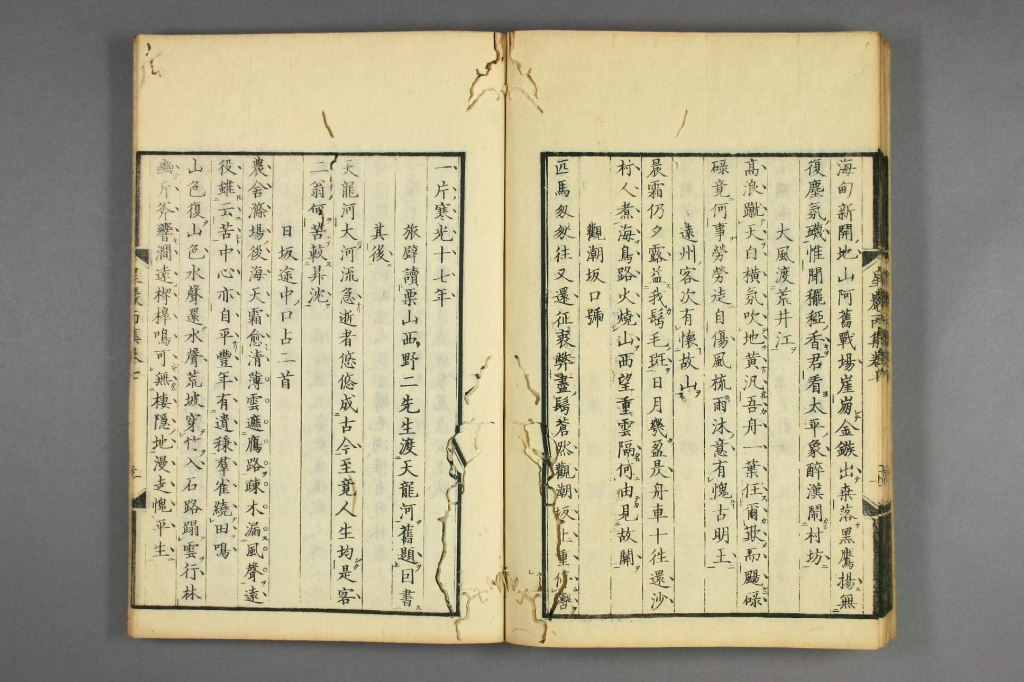 海甸新開地山阿舊戰場崖崩金鏃出桒落黒鷹揚無
復塵氛礟惟聞䆉稏香君看太平象醉漢鬧村坊
大風渡荒井江
髙浪蹴天白横氛吹地黄汎吾舟一葉任爾歘而颺碌
碌竟何事勞勞徒自傷風梳雨沐意有愧古明王
遠州客次有懷故山
晨霜仍夕露益我髩毛斑日月幾盈昃舟車十往還沙
村人煮海鳥路火燒山西望重雲隔何由見故關
觀潮坂口號
匹馬怱怱往又還征裘弊盡髩蒼然觀潮坂上重
一片寒光十七年
旅壁讀栗山西野二先生渡天龍河舊題囙書
其後
天龍河大河流急逝者悠悠成古今至竟人生均是客
二翁何苦較昇沈
日坂途中口占二首
農舍滌場後海天霜愈清薄雲遮鴈路疎木漏風聲遠
役雖云苦中心亦自平豐年有遺穗羣雀繞田鳴
山色復山色水聲還水聲荒坡穿竹入石路蹋雲行林
幽斤斧響澗遠桔槹鳴可無棲隱地漫走愧平生